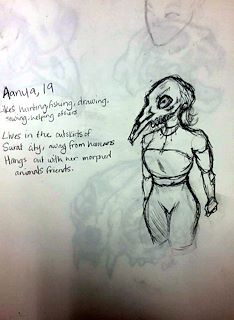 Aanya, 19
likes hunting, fishing, drawing,
sewing, helping others
Lives in the outskirts of
Surat city, away from humans
Hangs out with her morphed
animals friends.